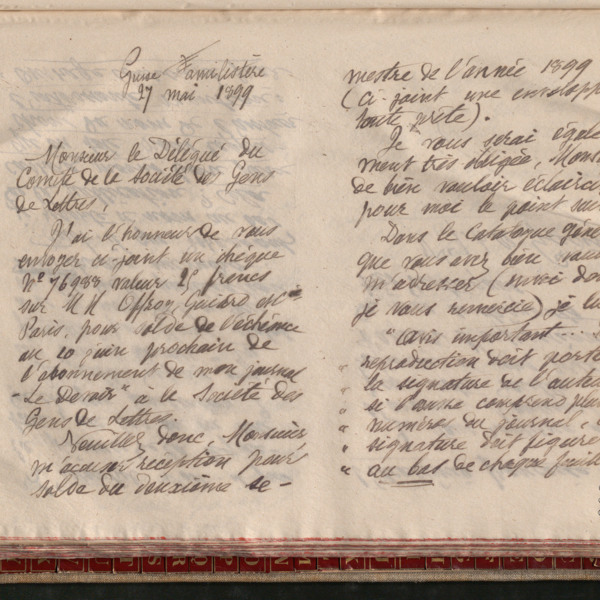 Guise Familistère
27 mai 1899
Monsieur le Délégué du
Comité de la Société des Gens
de Lettres,
J'ai l'honneur de vous
envoyer ci-joint un chèque
N° 76988 valeur 25 francs
sur MM Offroy, Guiard et Cie
Paris, pour solde de l'échéance
au 20 juin prochain de
l'abonnement de mon journal
"Le Devoir" à la Société des
Gens de Lettres.
Veuillez donc, Monsieur
m'accuser réception pour
solde du deuxième se-
mestre de l'année 1899
(ci-joint une envelopp
toute prête).
Je vous serai égale
ment très obligée, Mons
de bien vouloir éclairci
pour moi le point sui
Dans le Catalogue géné
que vous avez bien vou
m'adresser (
je vous remercie) je
"Avis important...
" reproduction doit porte
" la signature de l'auteu
" si l'œuvre comprend plu
" numéros du journal,
" signature doit figure
" au bas de chaque feuil